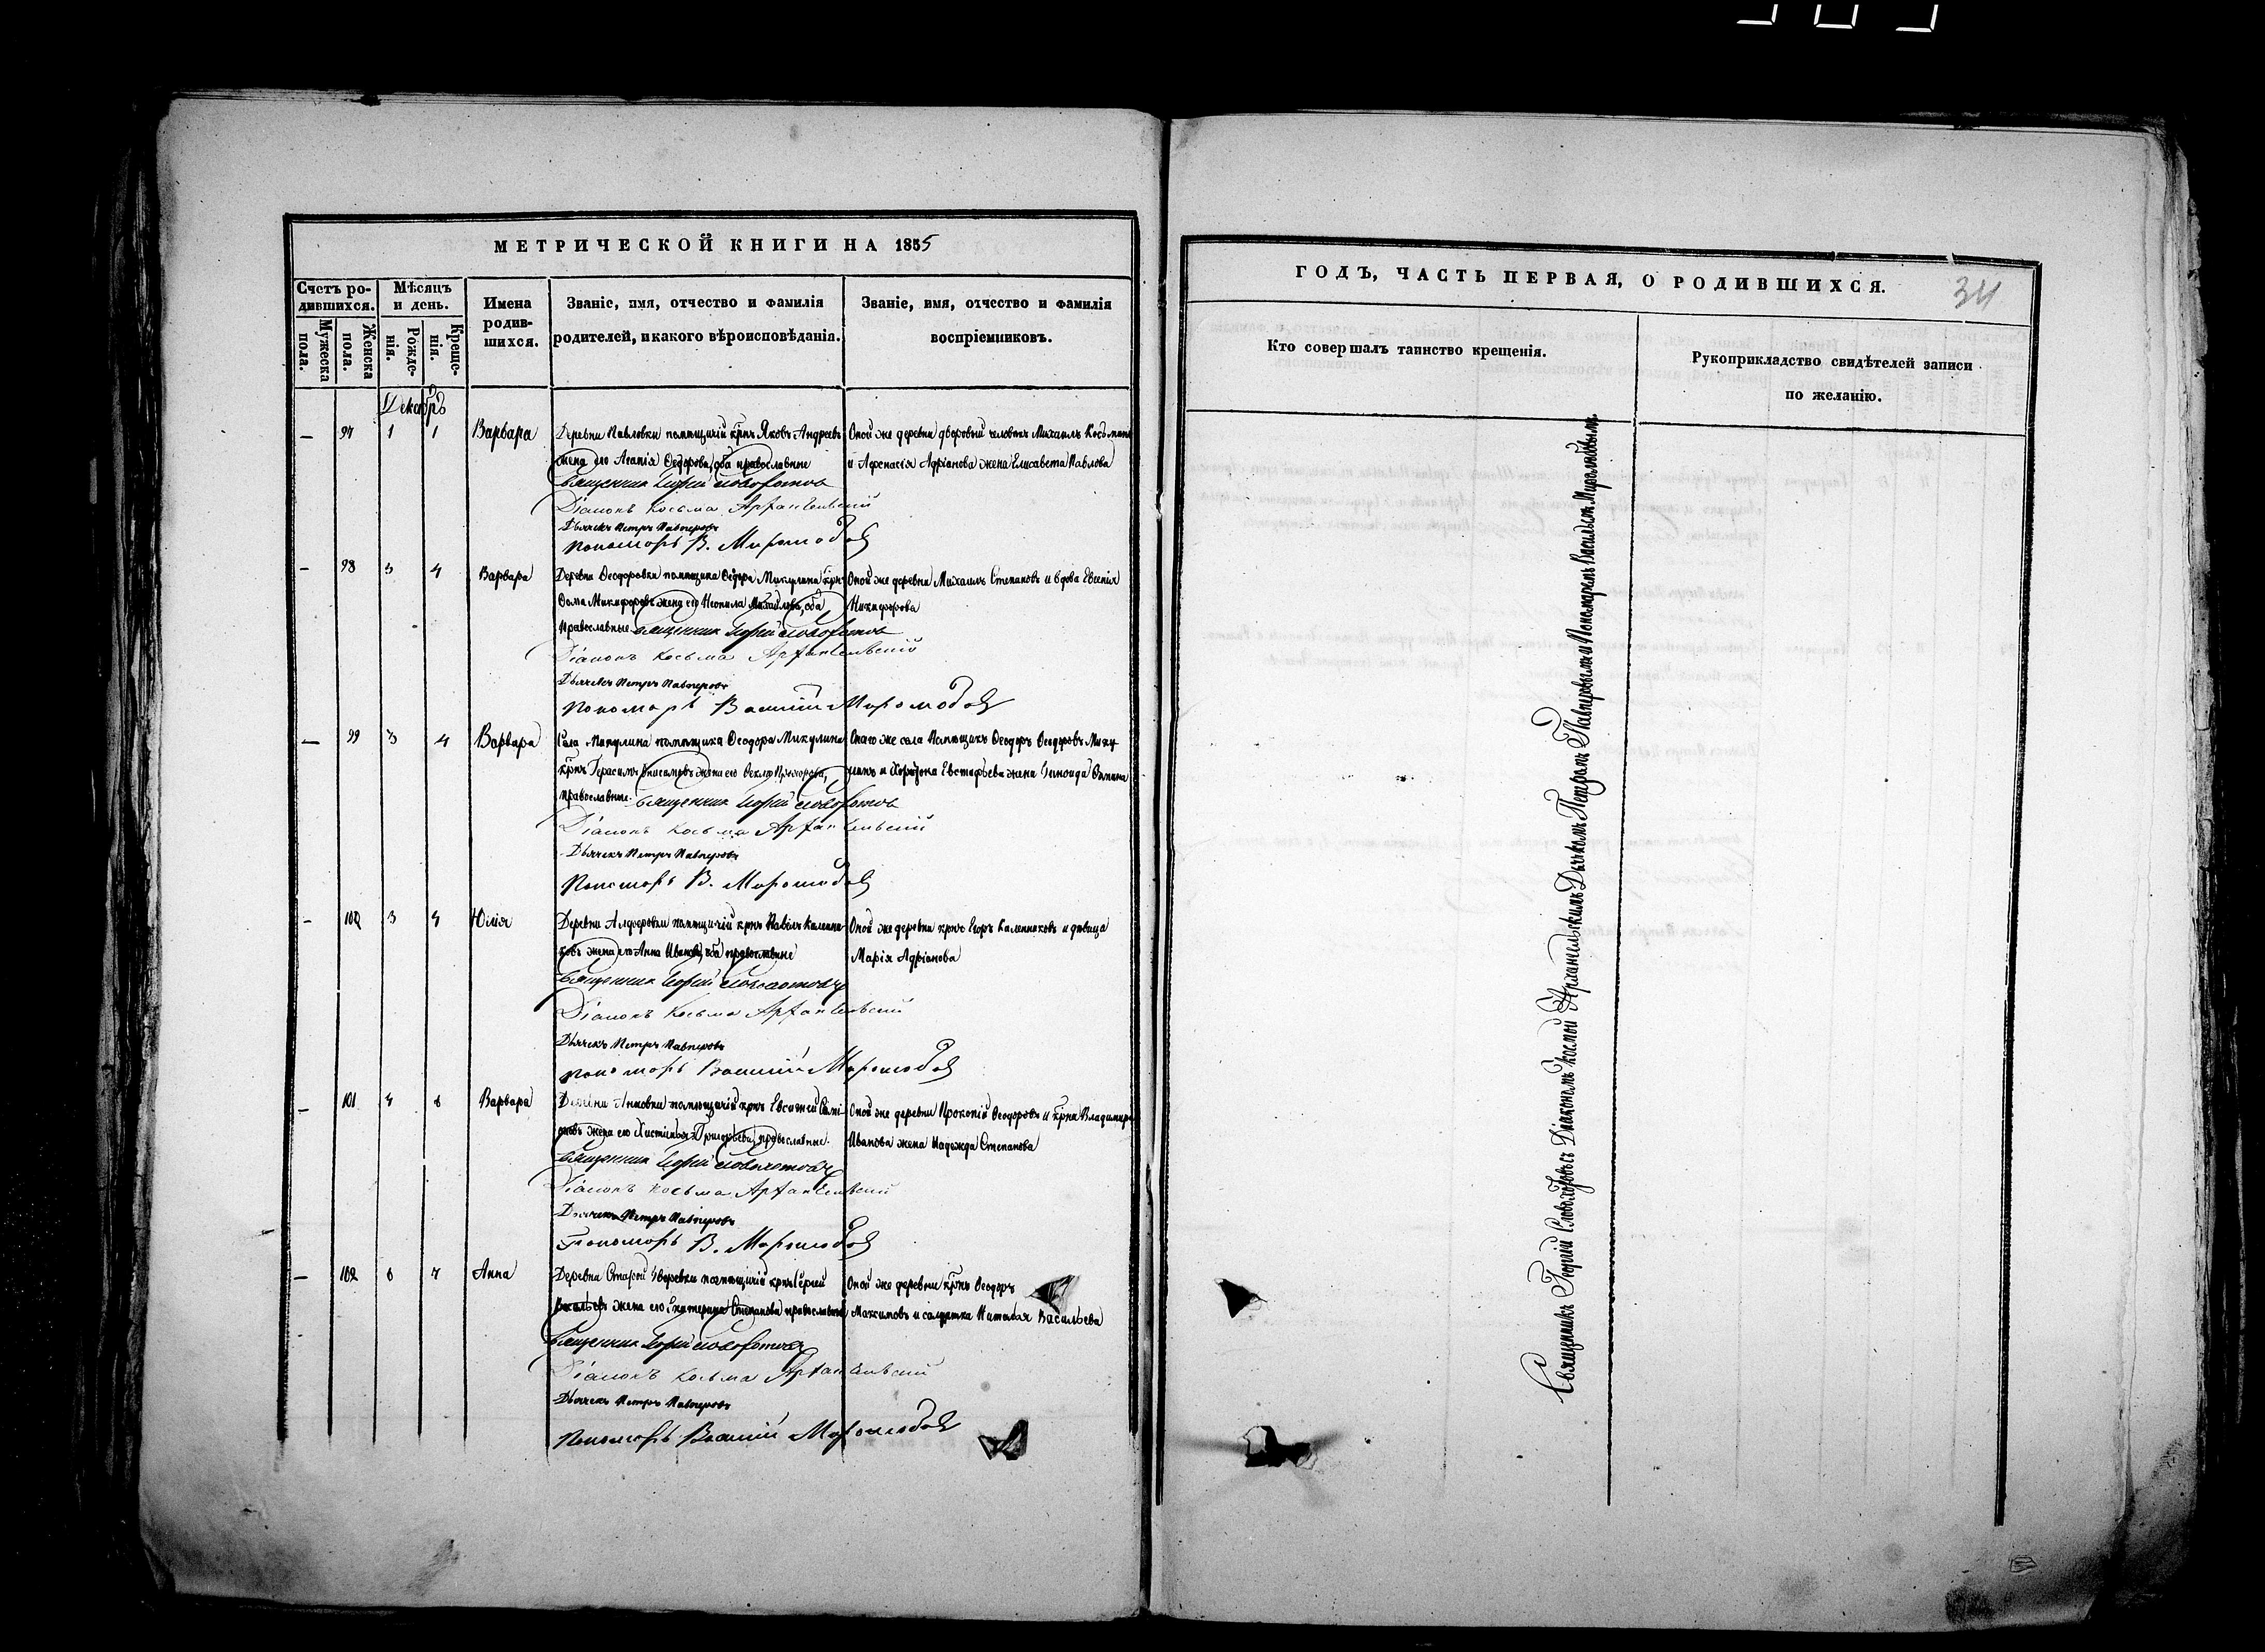 МЕТРИЧЕСКОЙ КНИГИ НА 1855
Счетъ ро-
дившихся.
Мужеска
пола.
Женска
пола.
Мѣсяцъ
и день.
Рожде-
нія.
Креще-
нія.
Имена
родив-
шихся.
Званіе, имя, отчество и фамилія
родителей, и какого вѣроисповѣданія.
Званіе, имя, отчество и фамилія
воспріемниковъ.
Декабрь
— 97 1 1 Варвара
Деревни Павловки помѣщичій крнъ Яковъ Андреевъ
жена его Агапія Ѳедорова, оба православные
Священникъ Георгій
Діаконъ Косьма Архангельскій
Дьячекъ Петръ Павперовъ
Пономарь В. Миролюбовъ
Оной же деревни дворовый человѣкъ Михаилъ Косьминъ
и Афанасія Адріанова жена Елисавета Павлова
— 98 3 4 Варвара
Деревни Ѳеодоровки помѣщика Ѳедора Микулина крнъ
Ѳома Никифоровъ жена его Неонила Михайлова, оба
Православные Священникъ Георгій
Діаконъ Косьма Архангельскій
Дьячекъ Петръ Павперовъ
Пономарь Василій Миролюбовъ
Оной же деревни Михаилъ Степановъ и вдова Евгенія
Никифорова
— 99 3 4 Варвара
Села Микулина помѣщика Ѳеодора Микулина
крнъ Герасимъ Анисимовъ жена его Ѳекла
православные. Священникъ Георгій
Діаконъ Косьма Архангельскій
Дьячекъ Петръ Павперовъ
Пономарь В. Миролюбовъ
Онаго же села Помѣщикъ Ѳеодоръ Ѳеодоровъ Мику
линъ и Евстафьева жена Ѳомина
— 100 3 4 Юлія
Деревни помѣщичій крнъ Павелъ Каленни-
ковъ жена его Анна Иванова, оба православные
Священникъ Георгій
Діаконъ Косьма Архангельскій
Дьячекъ Петръ Павперовъ
Пономарь Василій Миролюбовъ
Оной же деревни крнъ Егоръ Каленниковъ и дѣвица
Марія Адріанова
— 101 4 6 Варвара
Деревни Анновки помѣщичій крнъ Евсигней
жена его Григорьева, православные.
Священникъ Георгій
Діаконъ Косьма Архангельскій
Дьячекъ Петръ Павперовъ
Пономарь В. Миролюбовъ
Оной же деревни Прокопій Ѳеодоровъ и крна Владимира
Иванова жена Надежда Степанова
— 102 6 7 Анна
Деревни Старой помѣщичій крнъ Сергѣй
Васильевъ жена его Екатерина Степанова православные
Священникъ Георгій
Діаконъ Косьма Архангельскій
Дьячекъ Петръ Павперовъ
Пономарь Василій Миролюбовъ
Оной же деревни крнъ Ѳеодоръ
Максимовъ и солдатка Наталья Васильева
ГОДЪ, ЧАСТЬ ПЕРВАЯ, О РОДИВШИХСЯ.
34
Кто совершалъ таинство крещенія.
Рукоприкладство свидѣтелей записи
по желанію.
Священникъ Георгій съ Діакономъ Космой Архангельскимъ Дьячкомъ Петромъ Павперовымъ и Пономаремъ Васильемъ Миролюбовымъ